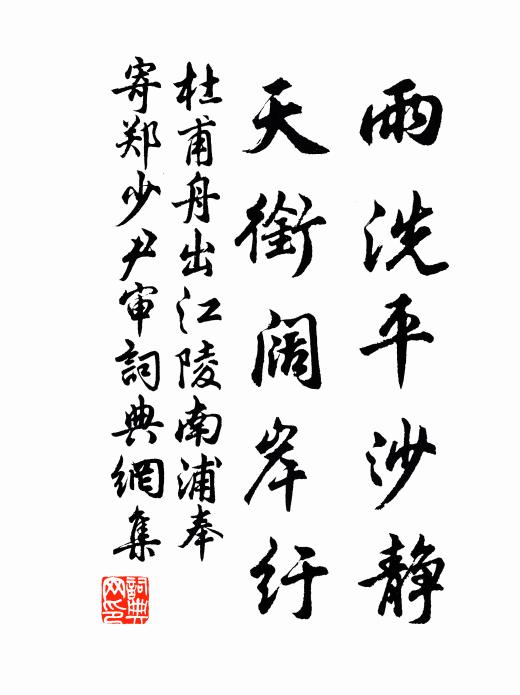 雨洗平沙静
天衔阔岸纡
杜甫舟出江陵南浦奉
寄郑少尹审詞典網集
詞典
网印